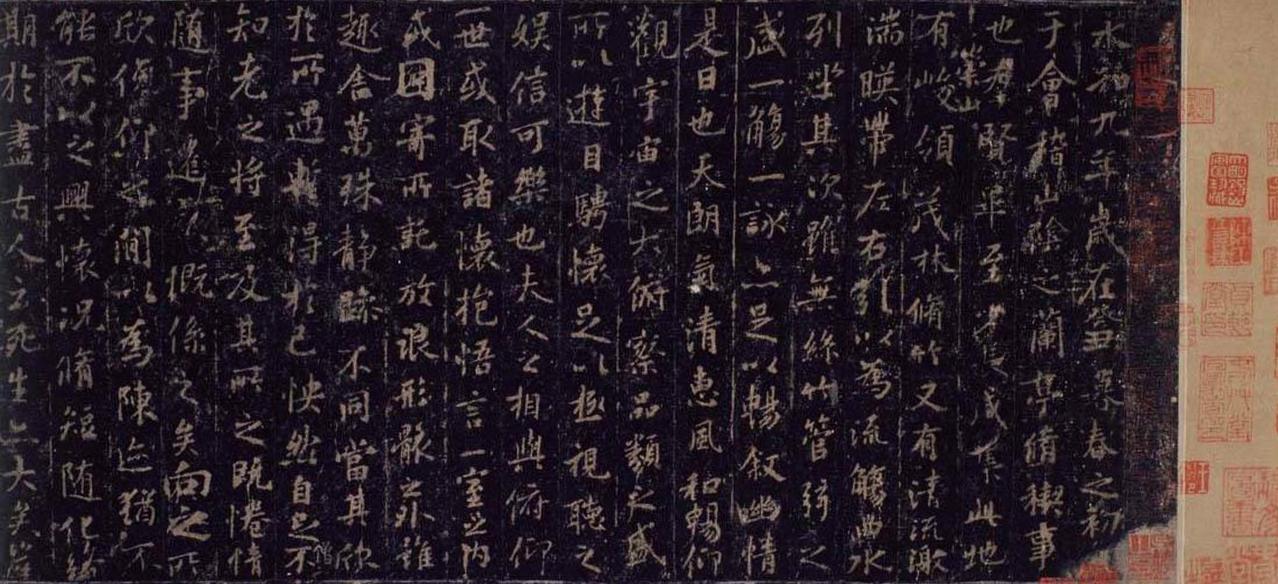 永和九年歲在癸丑暮春之初
于會稽山陰之蘭亭脩禊事
也羣賢畢至少長咸集此地
有崇山峻領茂林脩竹又有清流激
湍暎帶左右引以為流觴曲水
列坐其次雖無絲竹管弦之
盛一觴一詠亦足以暢敘幽情
是日也天朗氣清惠風和暢仰
觀宇宙之大俯察品類之盛
所以遊目騁懷足以極視聽之
娛信可樂也夫人之相與俯仰
一世或取諸懷抱悟言一室之內
或因寄所託放浪形骸之外雖
趣舍萬殊靜躁不同當其欣
於所遇蹔得於己怏然自足不
知老之將至及其所之既惓情
隨事遷感慨係之矣向之所
欣俛仰之閒以為陳迹猶不
能不以之興懷況脩短隨化終
期於盡古人云死生亦大矣豈